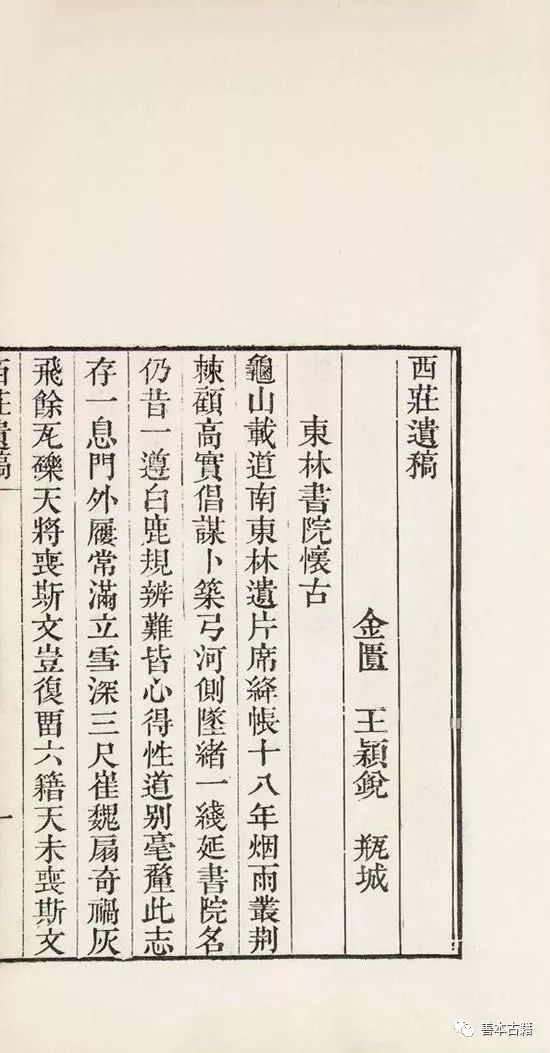 西莊遺稿
金匱 王穎銳 瓶城
東林書院懷古
龜山載道南東林遺片席絳帳十八年烟雨叢荆
棘顧高實倡謀卜築弓河側墜緒一綫延書院名
仍昔一遵白鹿規辨難皆心得性道别毫釐此志
存一息門外屨常滿立雪深三尺崔魏扇奇禍灰
飛餘瓦礫天將喪斯文豈復畱六籍天未喪斯文
西莊遺稿
一
善本古籍